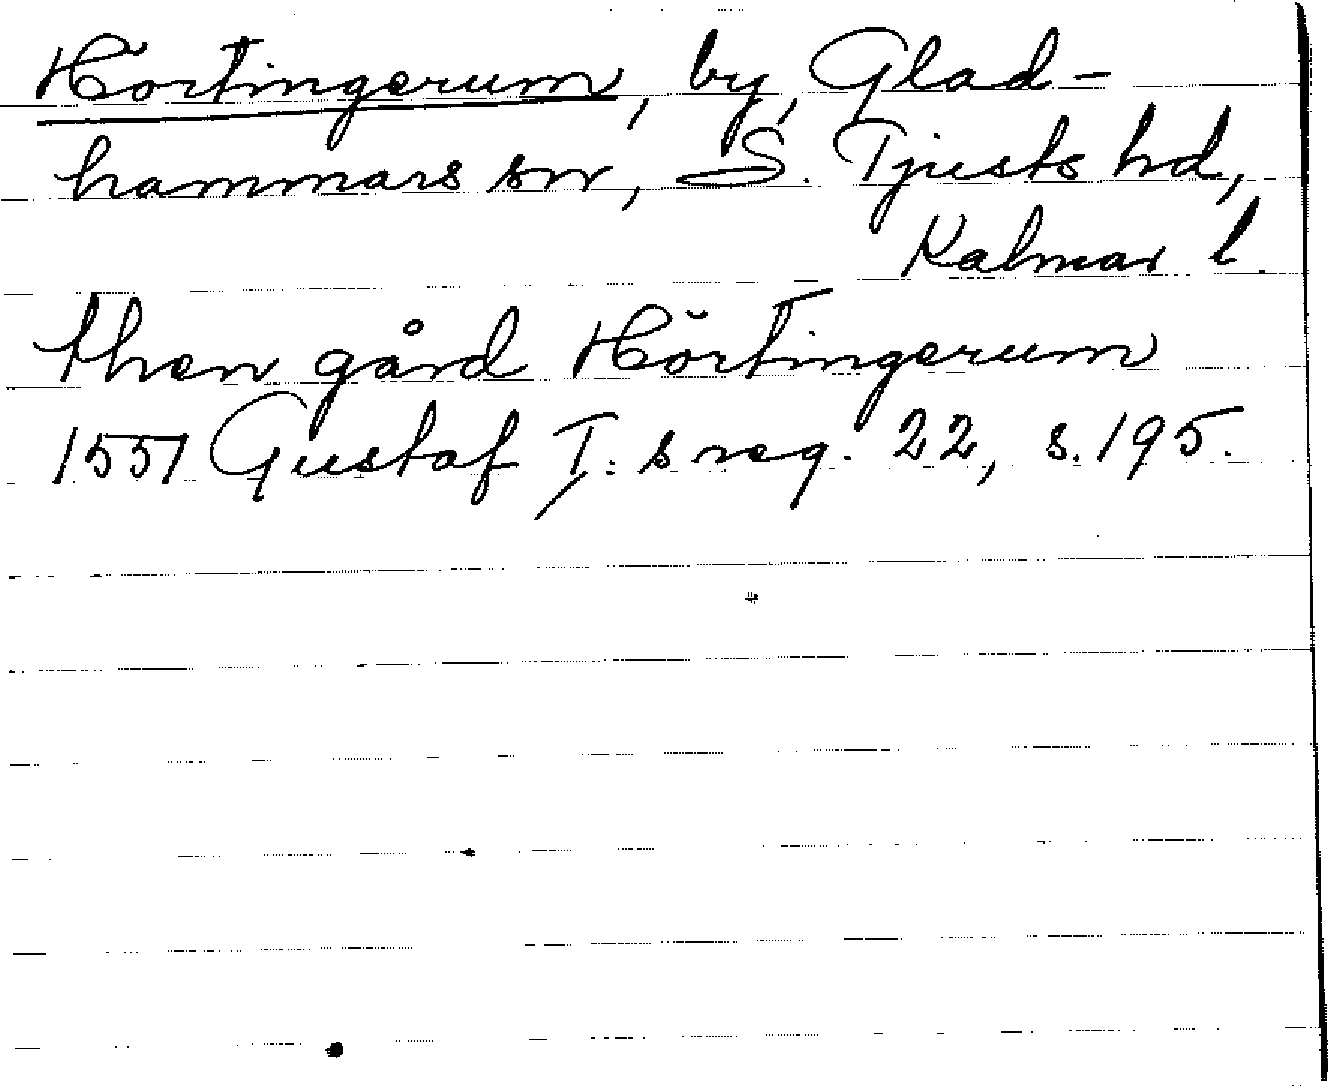 Hörtingerum, by, Glad-
hammars sn, S. Tjusts hd,
Kalmar l.
then gård Hörtingerum
1551 Gustaf I:s reg. 22, s. 195.